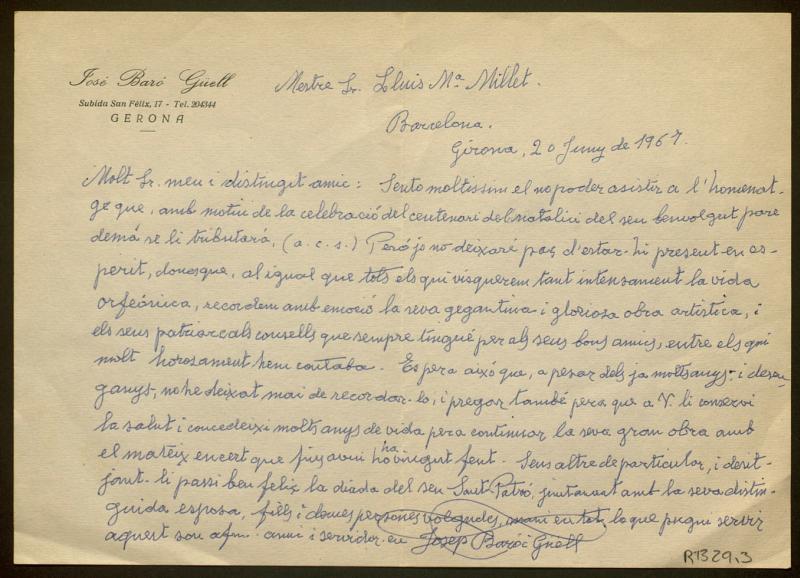 José Baró Güell
Subida San Félix, 17 - Tel. 204344
GERONA
Mestre Sr. Lluis Mª Millet.
Barcelona.
Girona, 20 Juny de 1967.
Molt Sr. meu i distingit amic: Sento moltissim el no poder asistir a l'homenat-
ge que, amb motiu de la celebració del centenari del natalici del seu benvolgut pare
demá se li tributará, (a. c. s.) Peró jo no deixaré pas d'estar-hi present en es-
perit, donçque, al igual que tots els qui visquerem tant intensament la vida
orfeónica, recordem amb emoció la seva gegantina i gloriosa obra artistica, i
els seus patriarcals consells que sempre tingué per als seus bons amics, entre els qui
molt horosament hem contaba. Es pera aixó que, a pesar dels ja molts anys i desen-
ganys, no he deixat mai de recordar-lo; i pregar també pera que a V. li conservi
la salut i concedeixi molts anys de vida pera continuar la seva gran obra amb
el mateix encert que fins avui ha vingut fent. Sens altre de particular, i desit-
jant-li passi ben feliç la diada del seu Sant Patró, juntament amb la seva distin-
guida esposa, fills i demes persones volgudes, mani en tot lo que pugui servir
aquest son afm. amic i servidor en Josep Baró i Güell
R1329,3